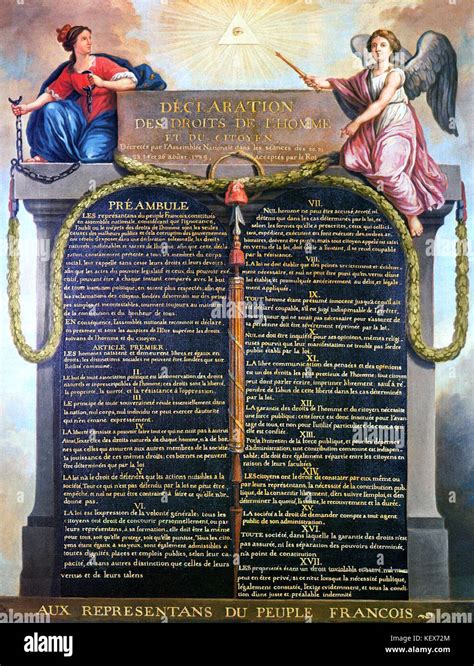 DÉCLARATION
DES DROITS DE L'HOMME
ET DU CITOYEN,
Décrétés par l'Assemblée Nationale dans les séances des 20, 21
23, 24 et 26 août 1789, Acceptés par le Roi
PRÉAMBULE
LES représentans du peuple François, constitués
en assemblée nationale, considérant que l'ignorance,
l'oubli ou le mépris des droits de l'homme sont les seules
causes des malheurs publics et de la corruption des gouvernemens
ont résolu d'exposer dans une déclaration solemnelle, les droits
naturels, inaliénables et sacrés de l'homme;
tous les membres du corps
social, leur rappelle sans cesse leurs droits et leurs devoirs;
afin que les actes du pouvoir législatif et ceux du pouvoir exé-
cutif, pouvant être à chaque instant comparés avec le but
de toute institution politique, en soient plus respectés; afin que
les réclamations des citoyens, fondées désormais sur des princi-
pes simples et incontestables, tournent toujours au maintien de
la constitution et du bonheur de tous.
EN conséquence, l'assemblée nationale reconnoît et déclare,
en présence et sous les auspices de l'Être suprême, les droits
suivans de l'homme et du citoyen.
ARTICLE PREMIER.
LES hommes naissent et demeurent libres et égaux en
droits, les distinctions sociales ne peuvent être fondées que sur
l'utilité commune.
II.
LE but de toute association politique est la conservation des droits
naturels et imprescriptibles de l'homme; ces droits sont la liberté,
la propriété, la sureté, et la résistance à l'oppression.
III.
LE principe de toute souveraineté réside essentiellement dans
la nation, nul corps, nul individu ne peut exercer d'autorité
qui n'en émane expressément.
IV.
LA liberté consiste à pouvoir faire tout ce qui ne nuit pas à autrui
Ainsi, l'exercice des droits naturels de chaque homme, n'a de bor-
nes que celles qui assurent aux autres membres de la société
la jouissance de ces mêmes droits; ces bornes ne peuvent être
déterminées que par la loi.
V.
LA loi n'a le droit de défendre que les actions nuisibles à la
société. Tout ce qui n'est pas défendu par la loi ne peut être
empêché, et nul ne peut être contraint à faire ce qu'elle n'or-
donne pas.
VI.
LA loi est l'expression de la volonté générale; tous les
citoyens ont droit de concourir personnellement, ou par
leurs représentans, à sa formation; elle doit être la même
pour tous, soit qu'elle protège, soit qu'elle punisse. Tous les
citoyens étant égaux à ses yeux, sont également admissibles à
toutes dignités, places et emplois publics, selon leur capa-
cité, et sans autres distinction que celles de leurs
vertus et de leurs talens
VII.
NUL homme ne peut être accusé, arrêté ni
détenu que dans les cas déterminés par la loi, et
selon les formes qu'elle a prescrites, ceux qui solli-
citent, expédient, exécutent ou font exécuter des ordres ar-
bitraires, doivent être punis; mais tout citoyen appelé ou saisi
en vertu de la loi, doit obéir à l'instant, il se rend coupable par la
résistance.
VIII.
LA loi ne doit établir que des peines strictement et évidem-
ment nécessaires, et nul ne peut être puni qu'en vertu d'une loi
établie et promulguée antérieurement au délit, et légale-
ment appliquée.
IX.
TOUT homme étant présumé innocent jusqu'à ce qu'il ait
été déclaré coupable, s'il est jugé indispensable de l'arrêter,
toute rigueur qui ne seroit pas nécessaire pour s'assurer de sa
personne doit être sévèrement réprimée par la loi.
X.
NUL ne doit être inquiété pour ses opinions, mêmes reli-
gieuses pourvu que leur manifestation ne trouble pas l'ordre
public établi par la loi.
XI.
LA libre communication des pensées et des opinions
est un des droits les plus précieux de l'homme; tout citoyen
peut donc parler, écrire, imprimer librement, sauf à
répondre de l'abus de cette liberté dans les cas déterminés
par la loi.
XII.
LA garantie des droits de l'homme et du citoyen nécessite
une force publique; cette force est donc instituée pour l'avan-
tage de tous, et non pour l'utilité particulière de ceux à
qui elle est confiée.
XIII.
POUR l'entretien de la force publique, et pour les dépenses
d'administration, une contribution commune est indispen-
sable; elle doit être également répartie entre les citoyens en
raison de leurs facultés
XIV.
LES citoyens ont le droit de constater par eux-mêmes ou par
leurs représentans, la nécessité de la contribution publi-
que, de la consentir librement, d'en suivre l'emploi, et d'en
déterminer la quotité, l'assiette, le recouvrement et la durée.
XV.
LA société a le droit de demander compte à tout agent
public de son administration.
XVI.
TOUTE société, dans laquelle la garantie des droits n'est pas
assurée, ni la séparation des pouvoirs déterminée,
n'a point de constitution.
XVII.
LES propriétés étant un droit inviolable et sacré, nul ne
peut en être privé, si ce n'est lorsque la nécessité publique,
légalement constatée, l'exige évidemment, et sous la condi-
tion d'une juste et préalable indemnité.
AUX REPRESENTANS DU PEUPLE FRANCOIS
alamy
Image ID: KEX72M
www.alamy.com